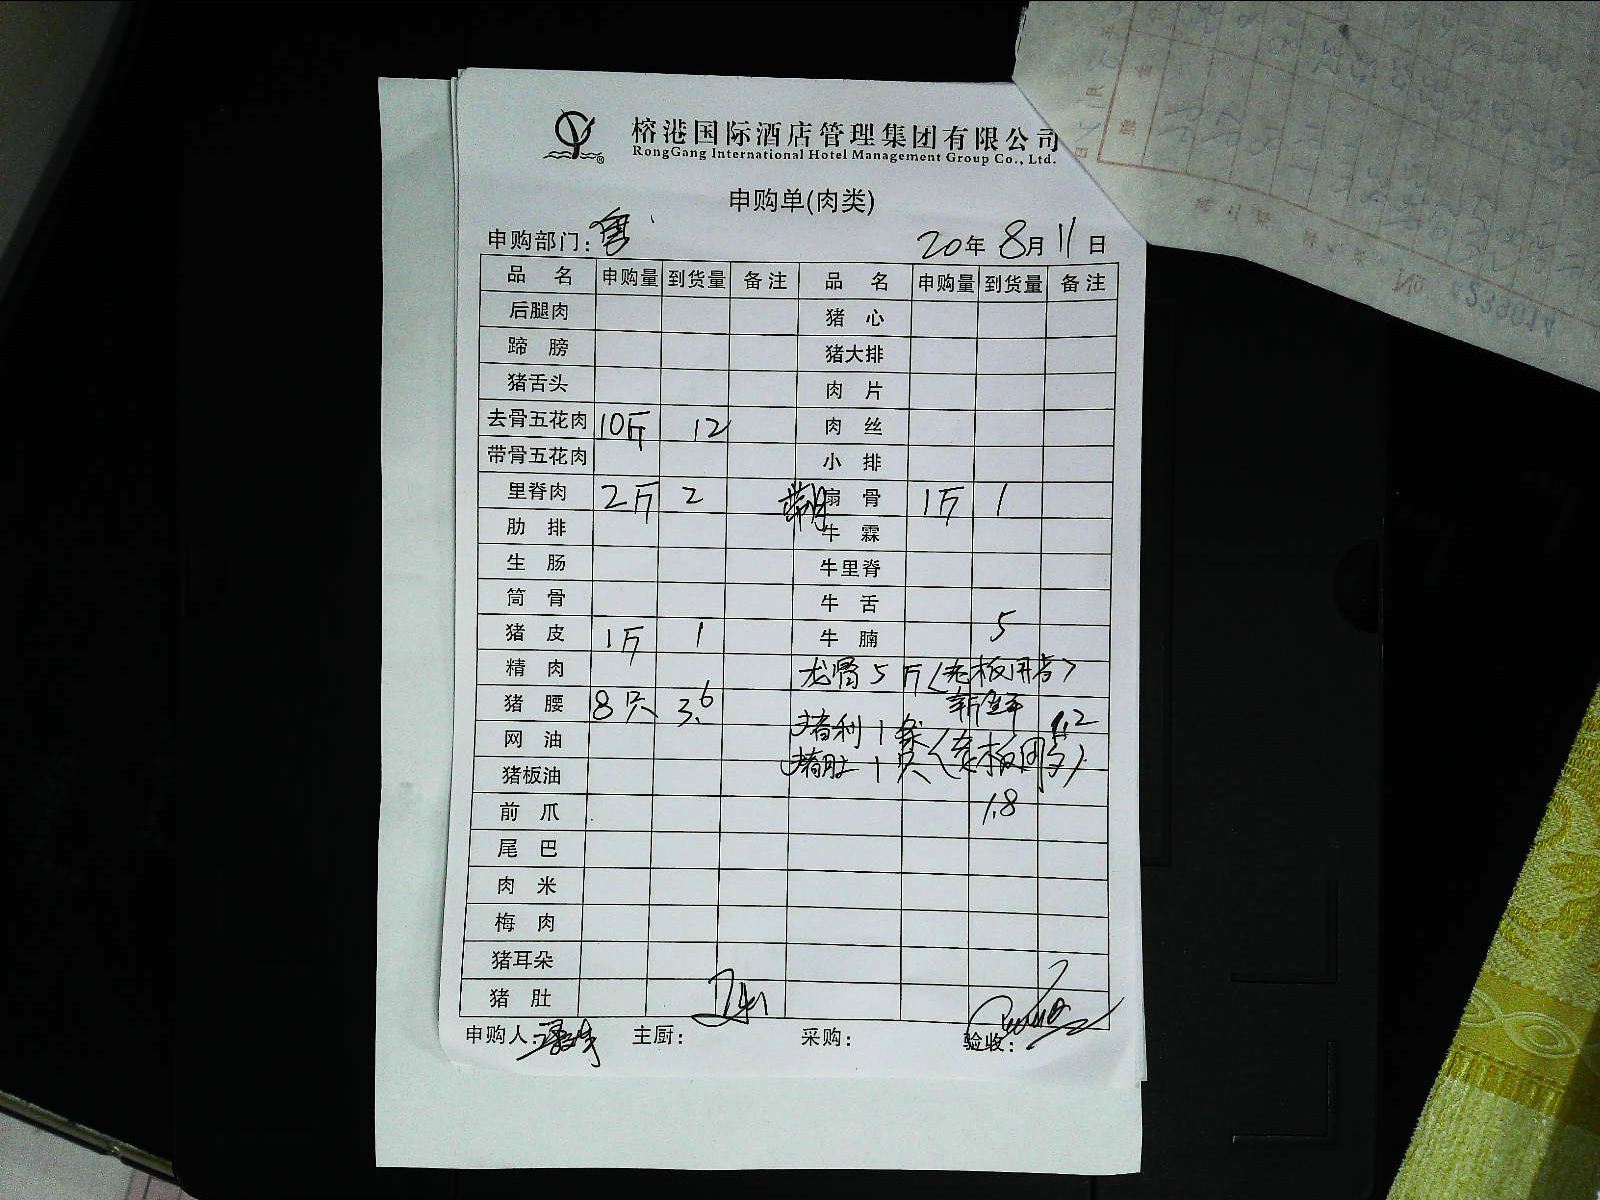 榕港国际酒店管理集团有限公司
RongGang International Hotel Management Group Co., Ltd.
申购单(肉类)
申购部门: 20年 8月 11日
品 名 申购量 到货量 备注 品 名 申购量 到货量 备注
后腿肉 猪 心
蹄 膀 猪大排
猪舌头 肉 片
去骨五花肉 10斤 12 肉 丝
带骨五花肉 小 排
里脊肉 2斤 2 扇 骨 1斤 1
肋 排 牛 霖
生 肠 牛里脊
筒 骨 牛 舌
猪 皮 1斤 1 牛 腩 5
精 肉 龙骨 5斤(老板用店)
猪 腰 8只 3.6 新鲜
网 油 猪利 1条 1.2
猪板油 猪肚 1只(老板用店)
前 爪 1.8
尾 巴
肉 米
梅 肉
猪耳朵
猪 肚
申购人: 主厨: 采购: 验收:
No 4239014